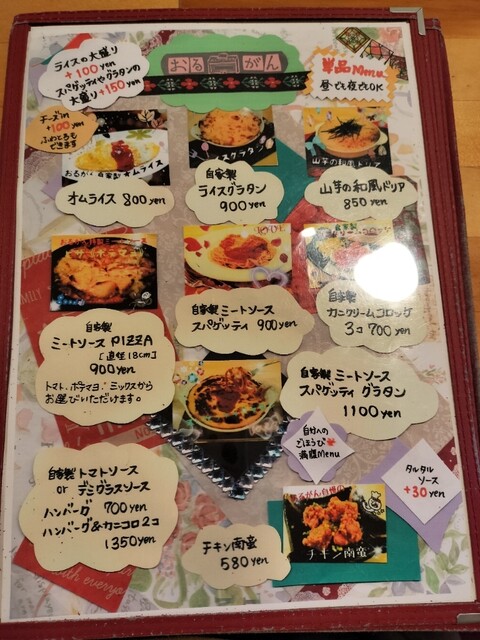 ライスの大盛り
+100yen
スパゲッティやグラタンの
大盛り+150yen
おるがん
単品Menu
昼でも夜でもOK
チーズin
+100yen
ふわとろも
できます
オムライス 800yen
自家製
ライスグラタン
900yen
山芋の和風ドリア
山芋の和風ドリア
850yen
自家製
ミートソース PIZZA
[直径18cm]
900yen
トマト、ポテマヨ、ミックスから
お選びいただけます。
自家製 ミートソース
スパゲッティ 900yen
自家製
カニクリームコロッケ
3コ 700yen
自家製 ミートソース
スパゲッティ グラタン
1100yen
自分への
ごほうび
満腹Menu
タルタル
ソース
+30yen
自家製 トマトソース
or デミグラスソース
ハンバーグ 700yen
ハンバーグ&カニコロ2コ
1350yen
チキン南蛮
580yen
チキン南蛮